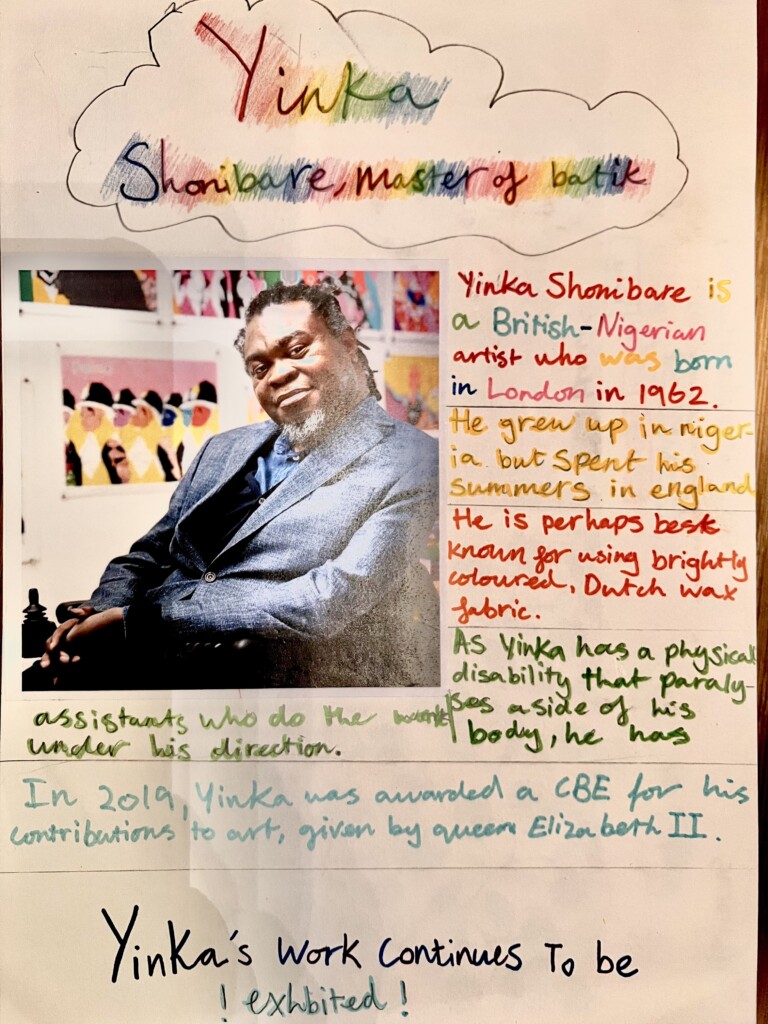 Yinka
Shonibare, master of batik
Yinka Shonibare is
a British-Nigerian
artist who was born
in London in 1962.
He grew up in niger-
ia but spent his
summers in england
He is perhaps best
known for using brightly
coloured, Dutch wax
fabric.
As Yinka has a physical
disability that paraly-
ses a side of his
body, he has
assistants who do the work
under his direction.
In 2019, Yinka was awarded a CBE for his
contributions to art, given by queen Elizabeth II.
Yinka's work continues To be
! exhbited !